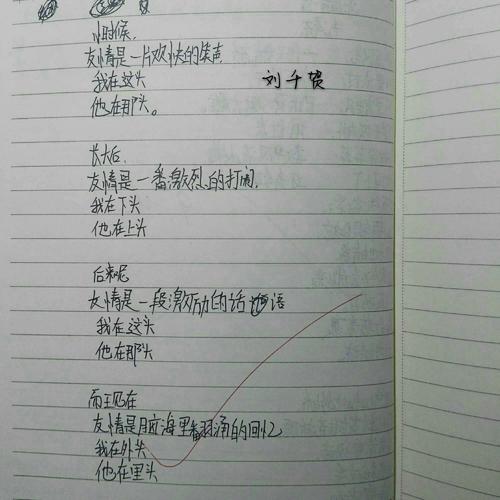 小时候,
友情是一片欢快的笑声
我在这头
他在那头。
刘千贺
长大后,
友情是一番激烈的打闹,
我在下头
他在上头
后来呢
友情是一段激励的话语
我在这头
他在那头
而现在
友情是脑海里翻涌的回忆
我在外头
他在里头